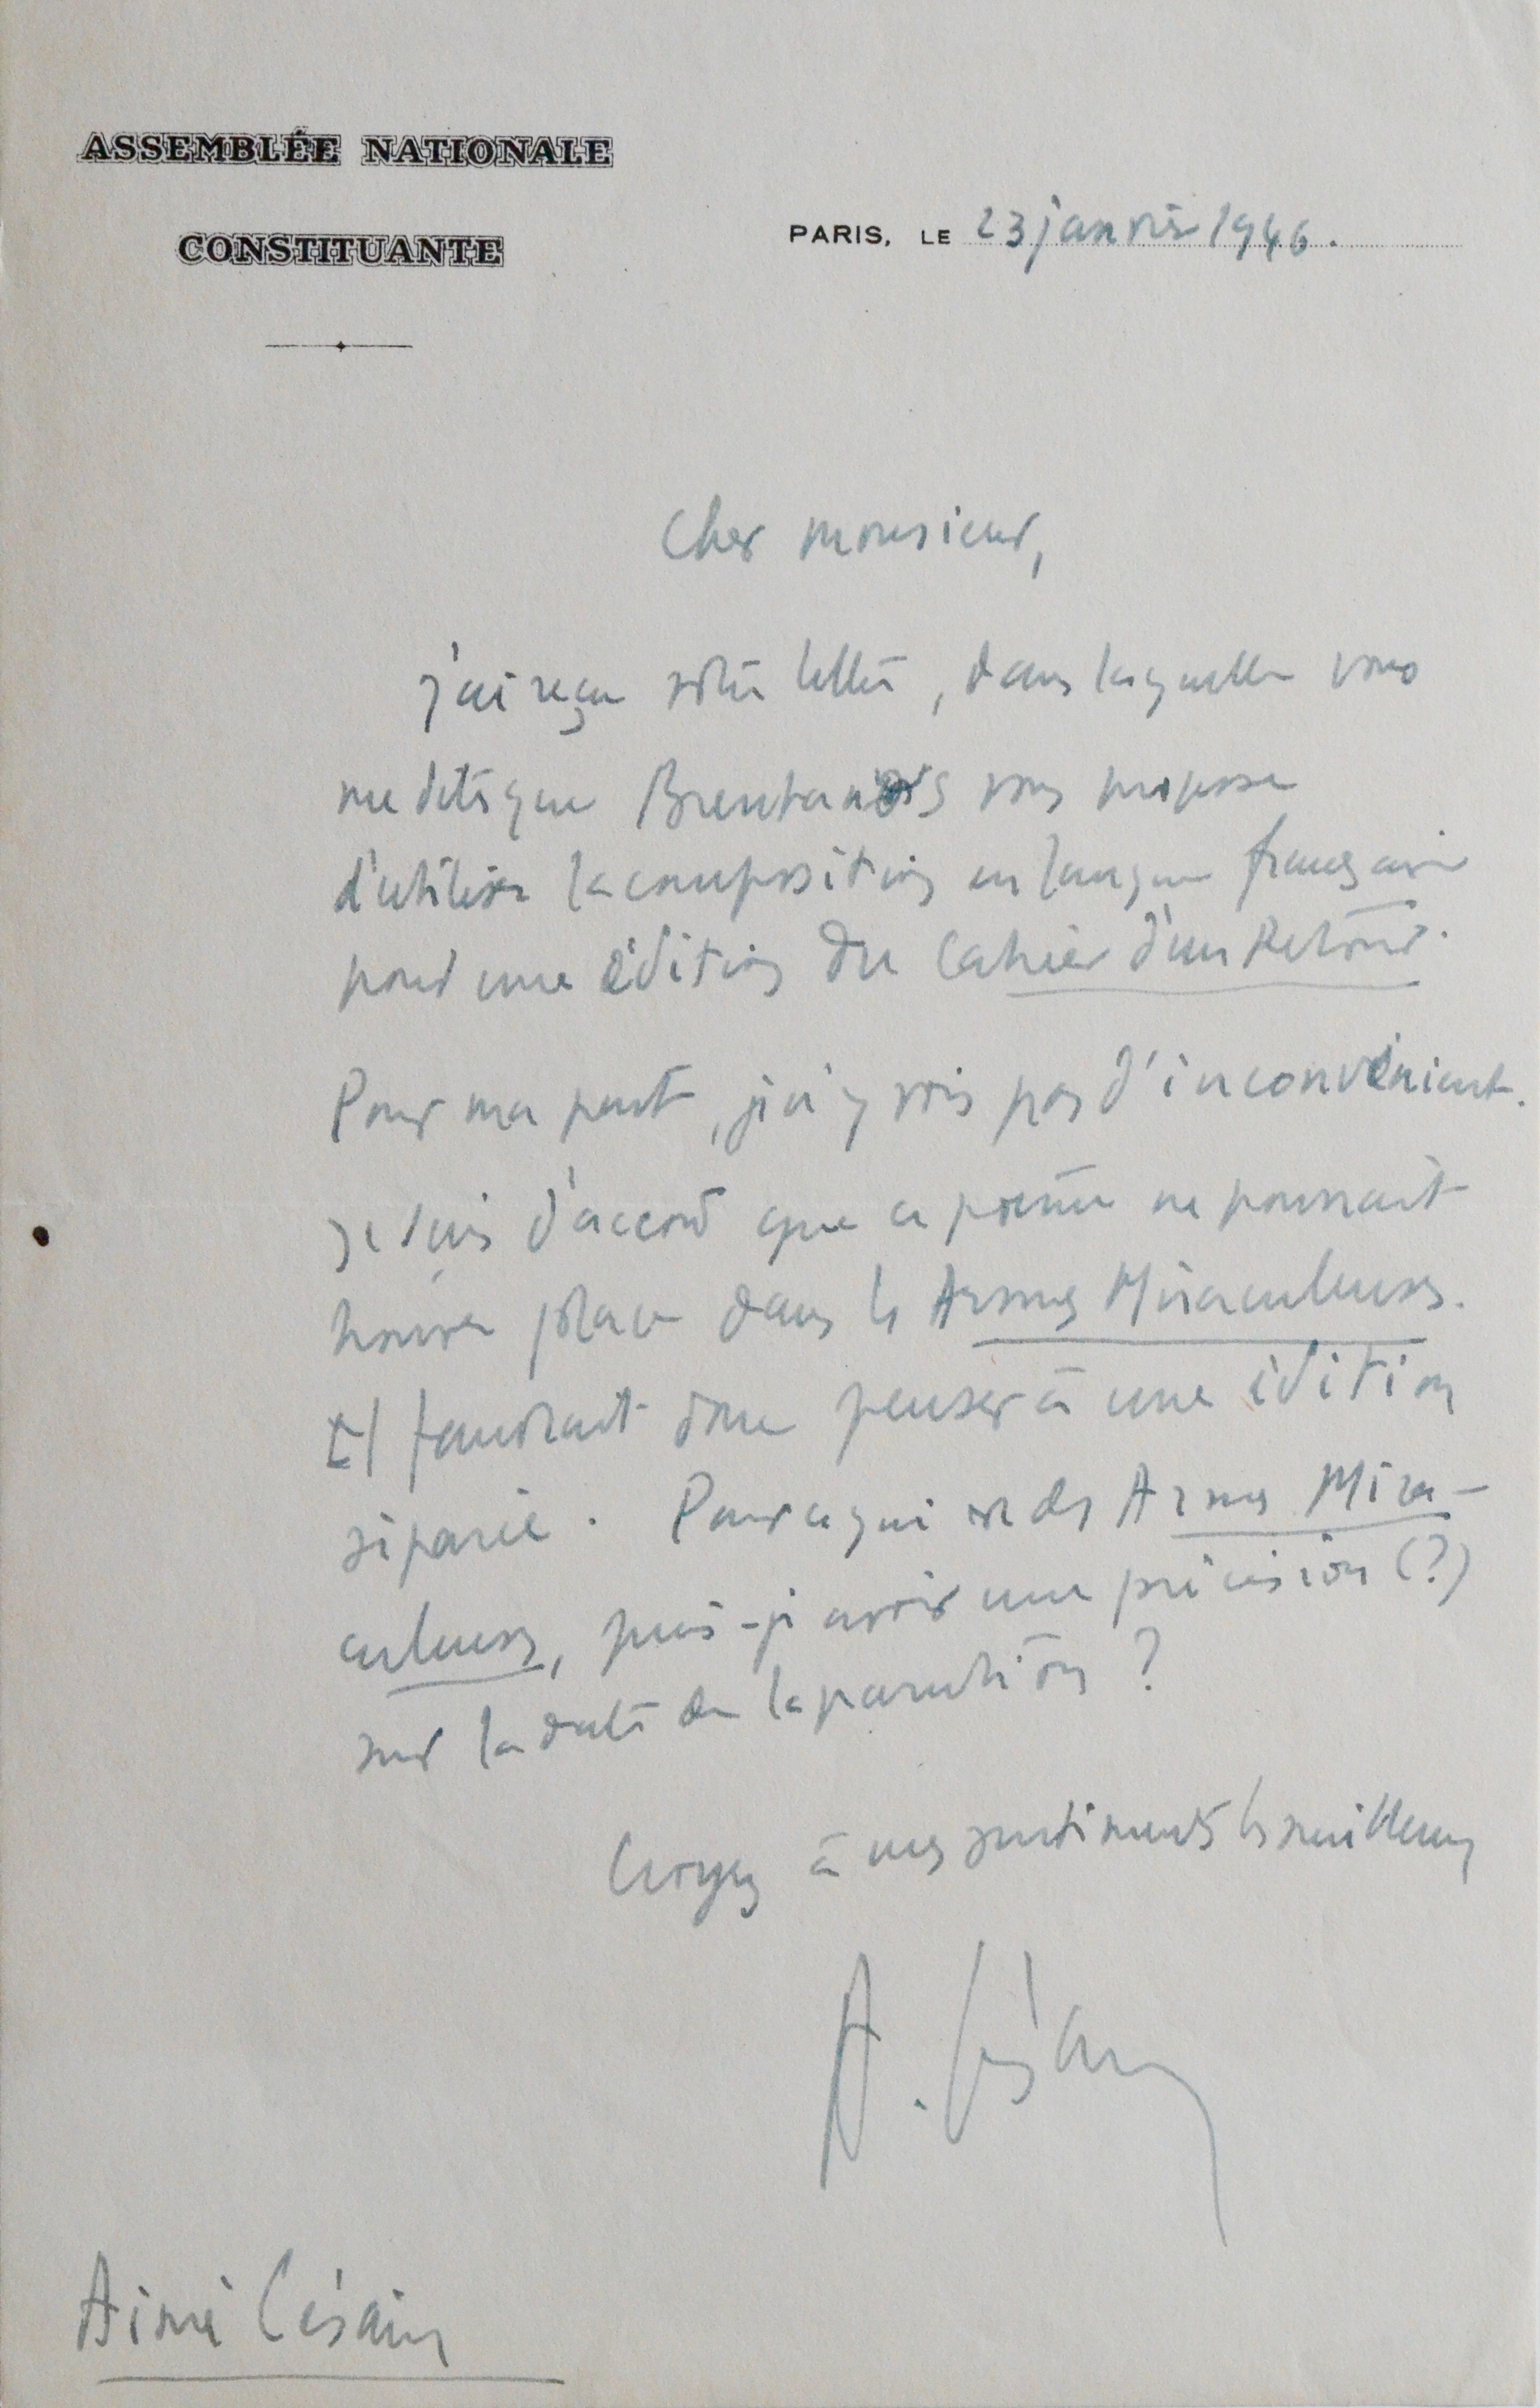 ASSEMBLÉE NATIONALE
CONSTITUANTE
PARIS, LE 23 janvier 1946.
Cher monsieur,
j'ai reçu votre lettre, dans laquelle vous
me dites que Brentano's vous propose
d'utiliser la composition en langue française
pour une édition du Cahier d'un Retour.
Pour ma part, je n'y vois pas d'inconvénient.
Je suis d'accord que ce poème ne pourrait
trouver place dans les Armes Miraculeuses.
Il faudrait donc penser à une édition
séparée. Pour ce qui est des Armes Mira-
culeuses, puis-je avoir une précision (?)
sur la date de la parution ?
Croyez à mes sentiments les meilleurs
A. Césaire
Aimé Césaire